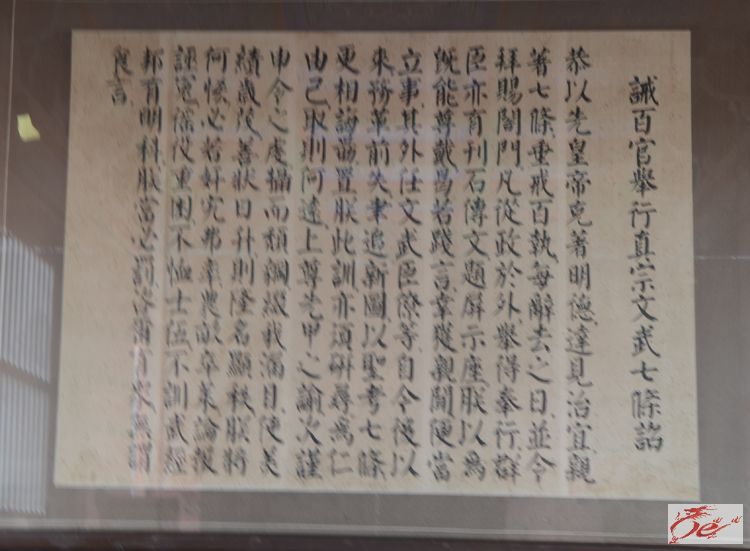 誡百官舉行真宗文武七條詔
恭以先皇帝克著明德達見治宜親
著七條垂戒百執每辭去之日並令
拜賜閤門凡從政於外舉得奉行群
臣亦有刊石傳文題屏示座朕以為
既能尊戴曷若踐言聿從親聞便當
立事其外任文武臣僚等自今後以
來務革前失聿追新圖以聖考七條
更相誨勗置朕此訓亦須研尋為仁
由己取則何遠上尊先甲之諭次謹
申令之處猵而頹綱綴我滿目使美
績歲茂善狀日升則隆名顯秩朕將
何悋必若奸宄弗率農畝卒萊論報
誣冤徭役重困不恤士伍不訓武經
邦有明科朕當必罰咨爾有眾無謂
食言